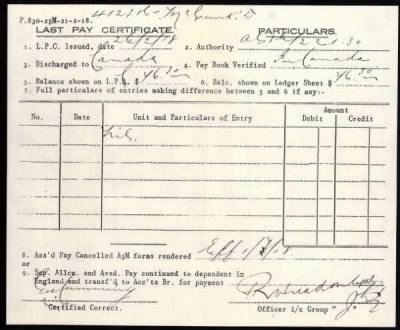 P.830-25M-21-2-18.
LAST PAY CERTIFICATE. PARTICULARS.
1. L.P.C. Issued, date 26/2/18 2. Authority
3. Discharged to Canada 4. Pay Book Verified In Canada
5. Balance shown on L.P.C. $ 46.30 6. Balc. shown on Ledger Sheet $ 46.30
7. Full particulars of entries making difference between 5 and 6 if any:-
No. Date Unit and Particulars of Entry Amount
Debit Credit
Nil.
8. Ass'd Pay Cancelled A3M forms rendered Eff 1/3/18.
or
9. Sep. Allce. and Assd. Pay continued to dependent in
England and transf'd to Acc'ts Br. for payment
Certified Correct. Officer i/c Group " "